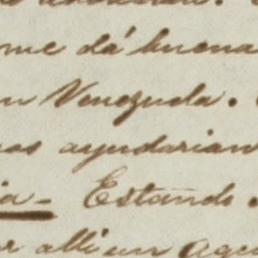 me dá buena
n Venezuela.
nos ayudarian
ia - Estando
r alli un Age